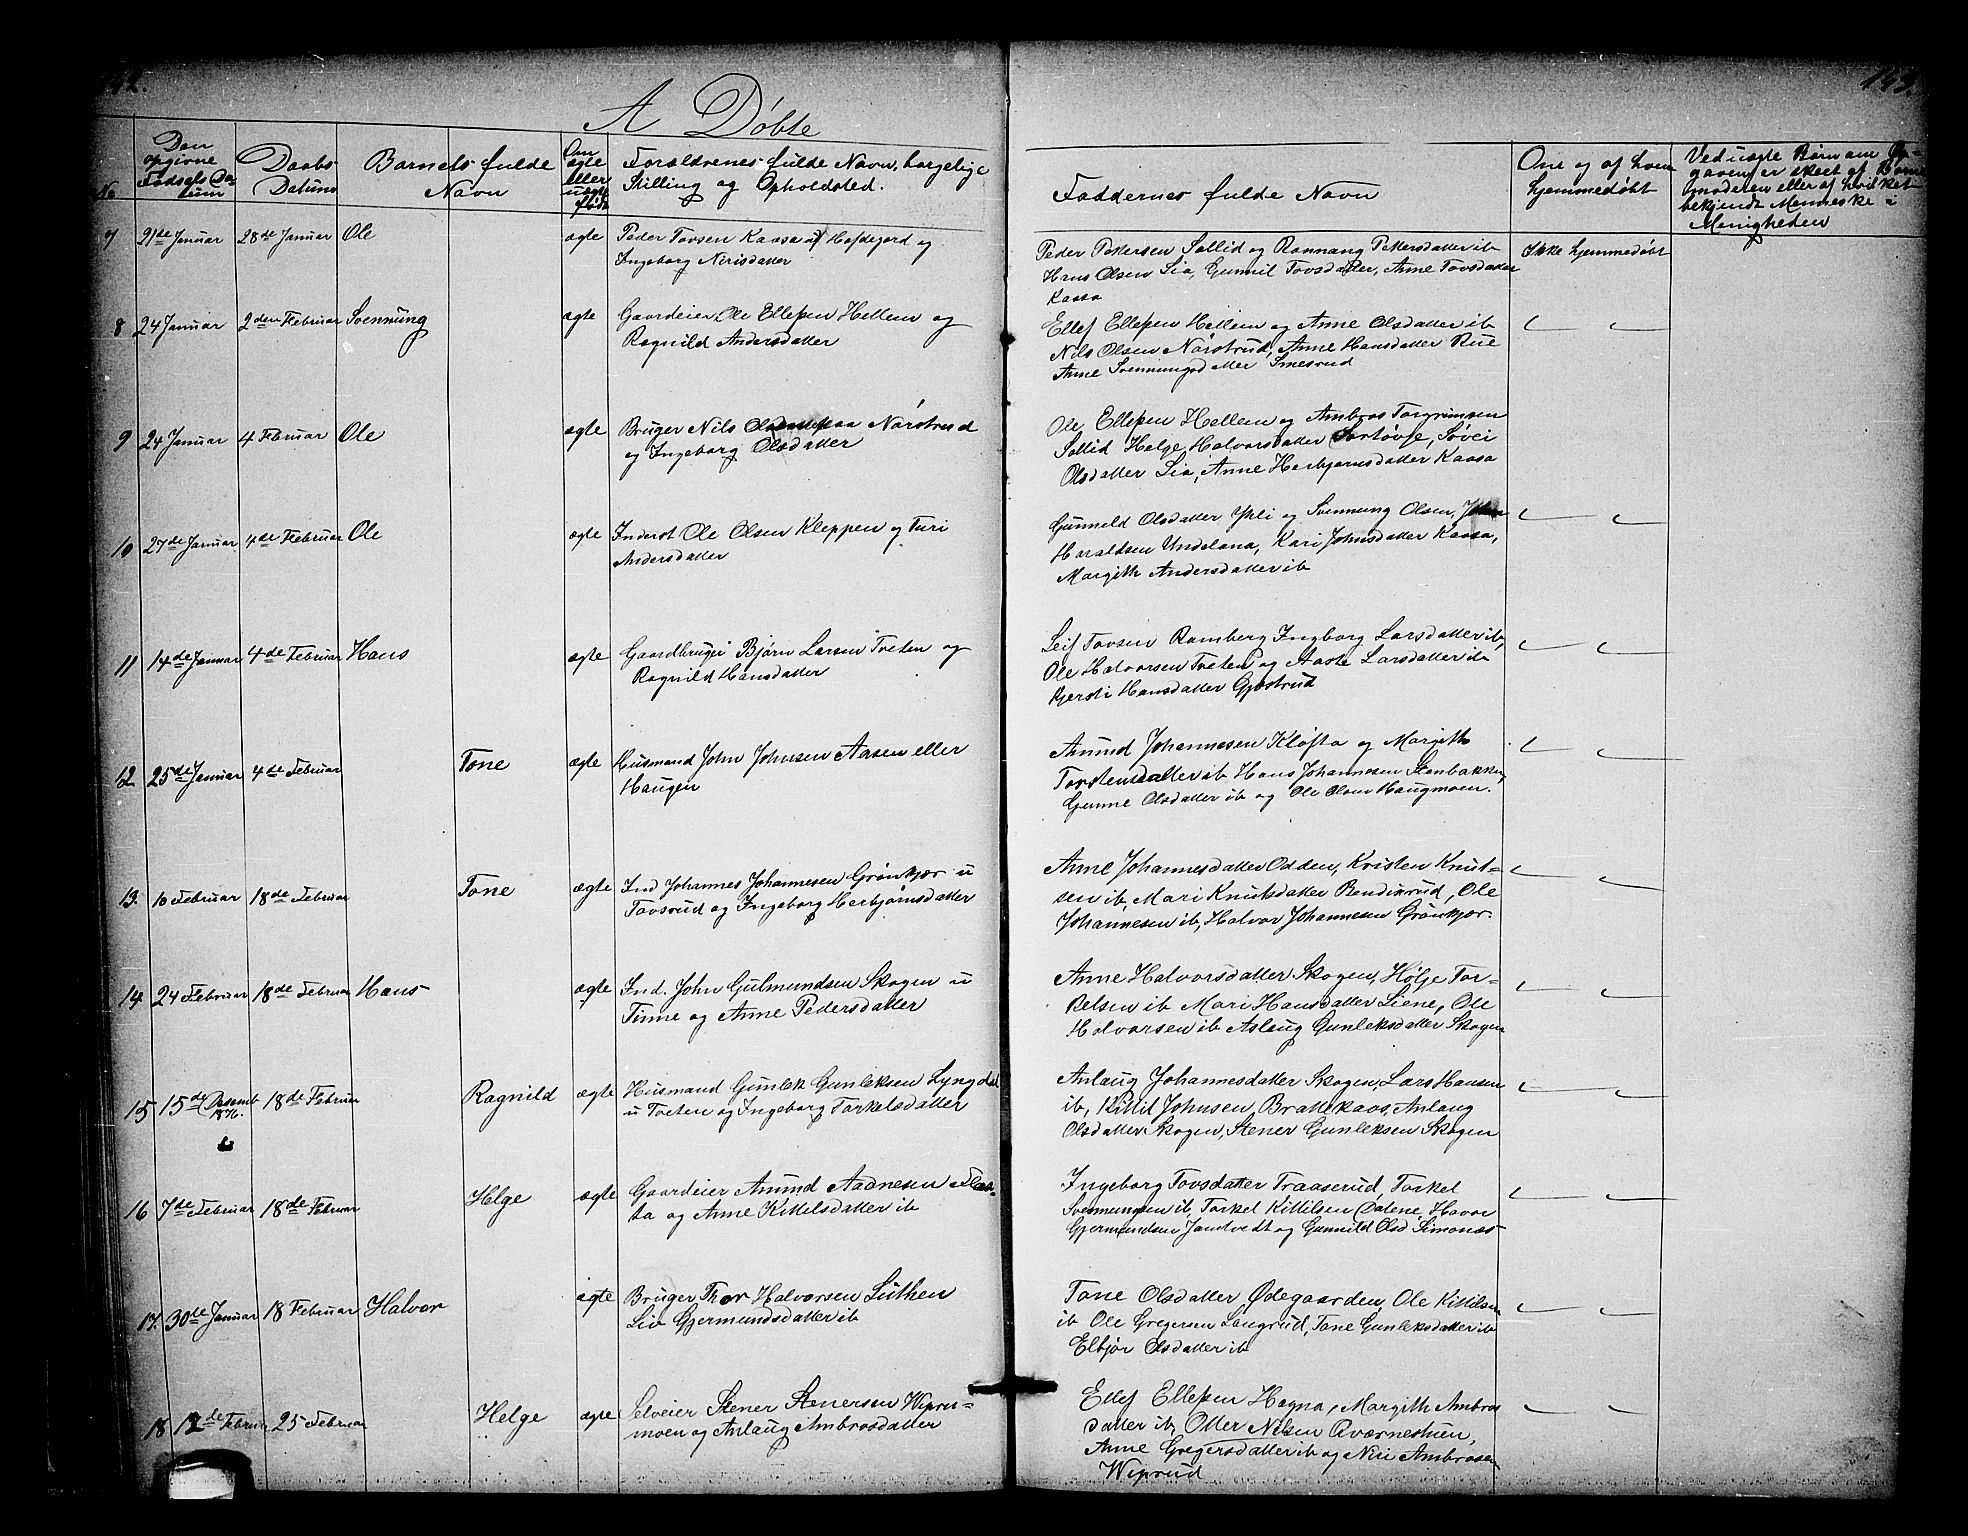 142.
A Døbte
No
Den opgivne Fødsels Datum
Daabs Datum
Barnets fulde Navn
Om ægte eller uægte født
Forældrenes fulde Navn, borgelige Stilling og Opholdsted.
7 21de Januar 28de Januar Ole ægte Peder Tovsen Kaasa af Hofdegjord og
Ingeborg Nirisdatter
8 24 Januar 2den Februar Svennung ægte Gaardeier Ole Ellefsen Hellem og
Ragnild Andersdatter
9 24 Januar 4 Februar Ole ægte Bruger Nils Nørstrud
og Ingeborg Olsdatter
10 27de Januar 4de Februar Ole ægte Inderst Ole Olsen Kleppen og Turi
Andersdatter
11 14de Januar 4de Februar Hans ægte Gaardbruger Bjørn Larsen Tveten og
Ragnild Hansdatter
12 25de Januar 4de Februar Tone ægte Husmand John Johnsen Aasen eller
Haugen
13. 10 Februar 18de Februar Tone ægte Ind Johannes Johannesen Grønkjær u
Tovsrud og Ingeborg Herbjørnsdatter
14 24 Februar 18de Februar Hans ægte Ind. John Gulmundsen Skogen u
Tinne og Anne Pedersdatter
15 15de Desemb 1876. 18de Februar Ragnild ægte Husmand Gunlek Gunleksen Lyngdal
u Tveten og Ingeborg Torkelsdatter
16 7de Februar 18de Februar Helge ægte Gaardeier Amund Aadnesen Flaa-
ta og Anne Kittelsdatter ib
17. 30de Januar 18 Februar Halvor ægte Bruger Thor Halvorsen Luthen
Liv Gjermundsdatter ib
18 12de Februar 25 Februar Helge ægte Selveier Stener Stenersen Wipru=
moen og Anlaug Ambrosdatter
143.
Faddernes fulde Navn
Om og af hvem hjemmedøbt
Ved uægte Børn om Opgaven er skeet af Barnemoderen eller af hvilket bekjendt Menneske i Menigheden
Peder Pettersen Sollid og Rannaug Pettersdatter ib Ikke hjemmedøbt
Hans Olsen Lia, Gunnil Tovsdatter, Anne Tovsdatter
Kaasa
Ellef Ellefsen Hellem og Anne Olsdatter ib
Nils Olsen Nørstrud, Anne Hansdatter Rue
Anne Svennungsdatter Smesrud
Ole Ellefsen Hellem og Ambros Torgrimsen
Sollid Helge Halvorsdatter Søvei
Olsdatter Lia, Anne Herbjørnsdatter Kaasa
Gunneld Olsdatter og Svennung Olsen, John
Haraldsen Undelana, Kari Johnsdatter Kaasa,
Margith Andersdatter ib
Leif Tovsen Ramberg Ingborg Larsdatter ib,
Ole Halvorsen Tveten og Aaste Larsdatter ib
Kjersti Hansdatter Gjøstrud
Amund Johannesen Kløfta og Margith
Torstensdatter ib Hans Johannesen Stenbakken,
Gunne Olsdatter ib og Ole Olsen Haugmoen.
Anne Johannesdatter Odden, Kristen Knut=
sen ib, Mari Knutsdatter Bendixrud, Ole
Johannesen ib, Halvor Johannesen Grønkjær.
Anne Halvorsdatter Skogen, Hølje Tor=
kelsen ib Mari Hansdatter Liene, Ole
Halvorsen ib Aslaug Gunleksdatter Skogen
Anlaug Johannesdatter Skogen, Lars Hansen
ib, Kittil Johnsen Brattekaas, Anlaug
Olsdatter Skogen, Stener Gunleksen Skogen
Ingeborg Tovsdatter Traaserud, Torkel
Svennungsen ib, Torkel Kittilsen Dalene, Havor
Gjermundsen Jamtvedt og Gunnild Olsd Simonæs
Tone Olsdatter Ødegaarden, Ole Kittilsen
ib Ole Gregersen Langrud, Tone Gunleksdatter ib
Elbjør Olsdatter ib
Ellef Ellefsen Hogna, Margith Ambros
datter ib, Otter Nilsen Qværnestuen,
Anne Gregersdatter ib og Niri Ambrosen
Wiprud